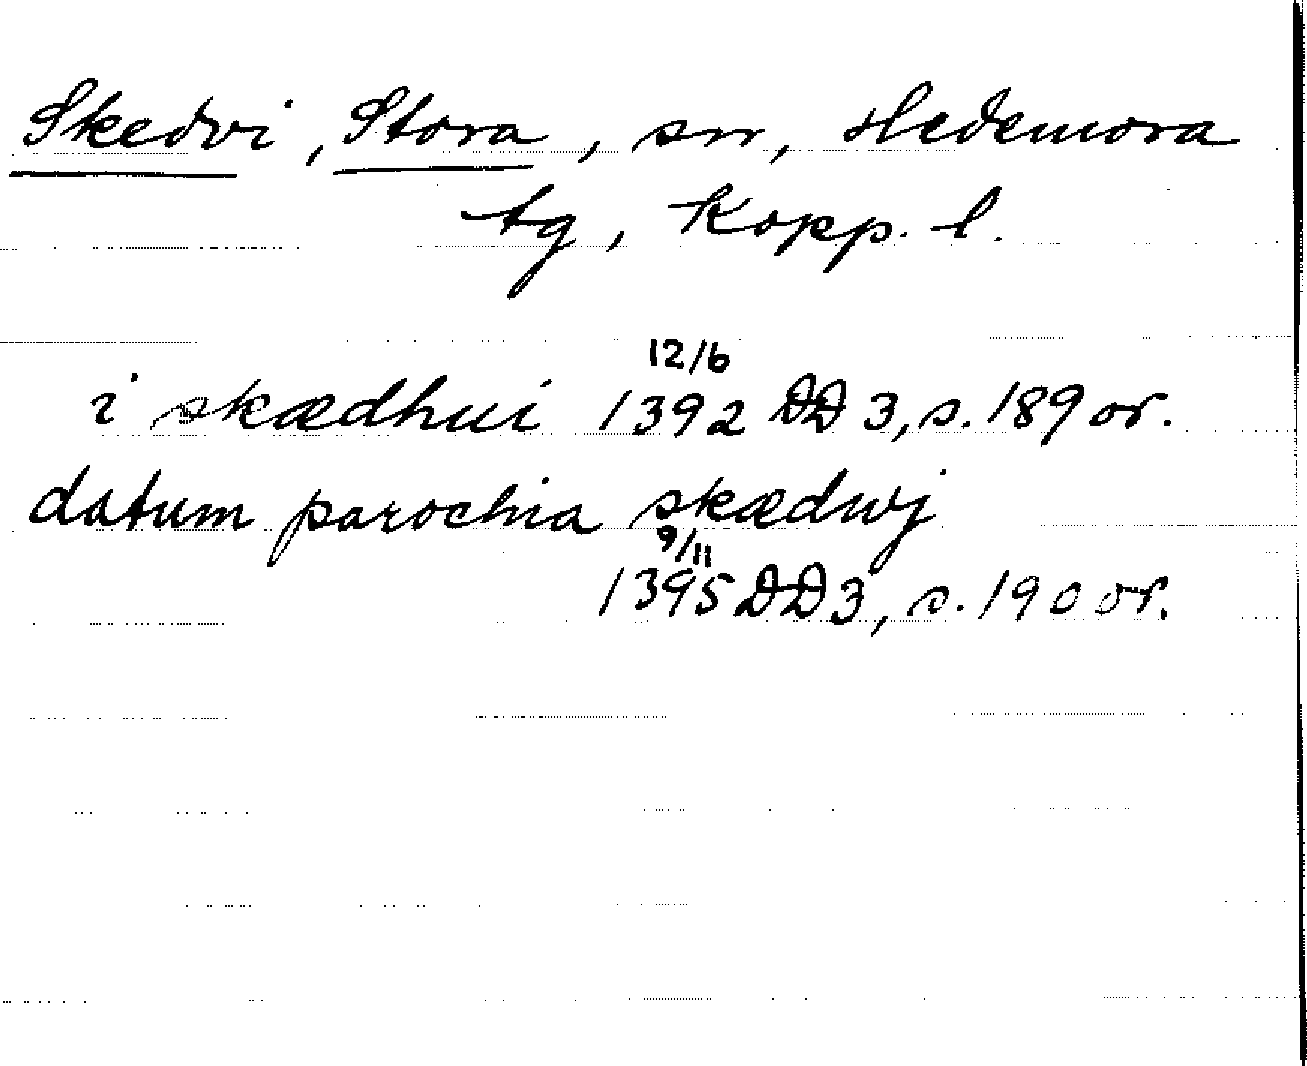 Skedvi, Stora, sn, Hedemora
tg, Kopp. l.
12/6
i skædhui 1392 DD 3, s. 189 or.
datum parochia skædwj
9/11
1395 DD 3, s. 190 or.